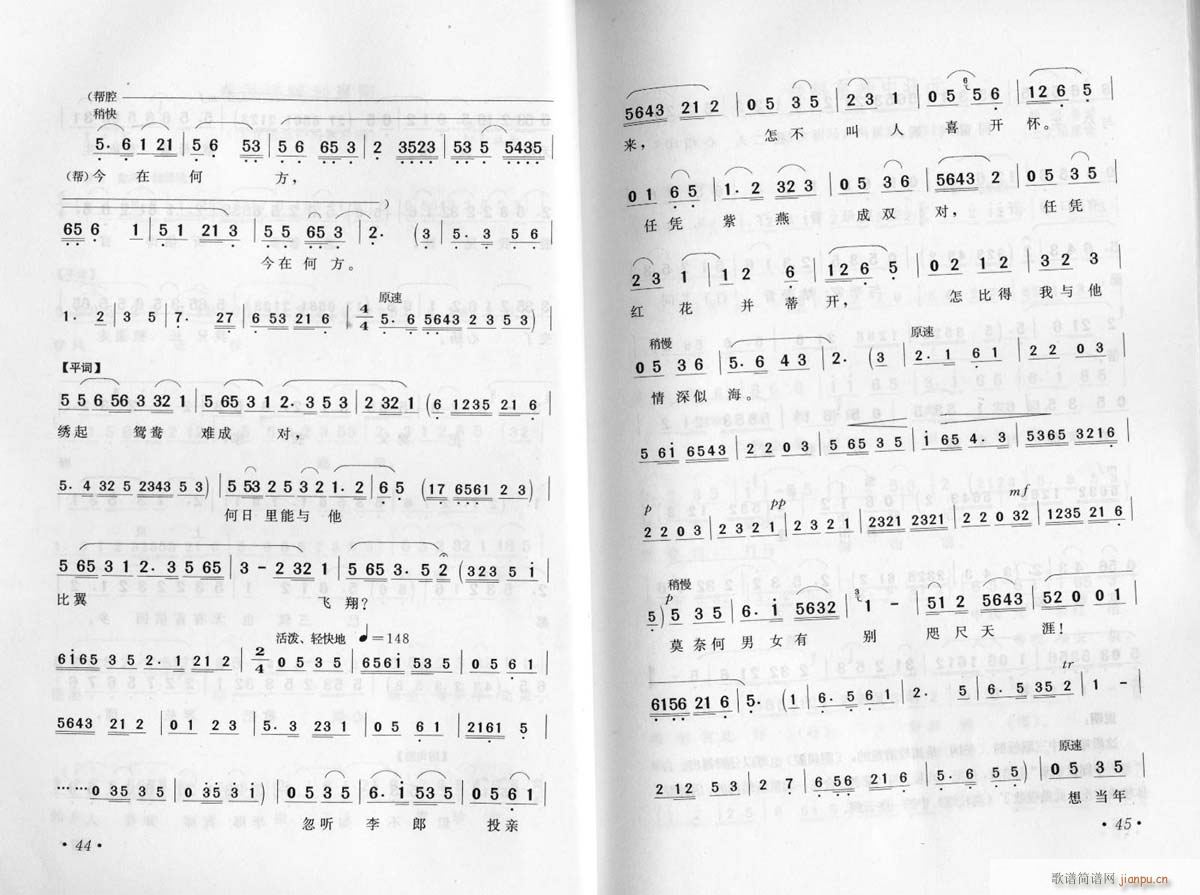 (帮腔
稍快
5. 6 1 21 | 5 6 53 | 5 6 65 3 | 2 3523 | 53 5 5435 |
(帮) 今 在 何 方，
)
65 6 1 | 5 1 21 3 | 5 5 65 3 | 2. (3 | 5. 3 5 6 |
今 在 何 方。
原速
1. 2 | 3 5 | 7. 27 | 6 53 21 6 | 4/4 5. 6 5643 2 3 5 3 )
【平词】
5 5 6 56 3 32 1 | 5 65 3 1 2. 3 5 3 | 2 32 1 ( 6 1235 21 6 |
绣起 鸳鸯 难成 对，
5. 4 32 5 2343 5 3 ) | 5 53 2 5 32 1. 2 | 6 5 (17 6561 2 3 ) |
何日 里能与 他
5 65 3 1 2. 3 5 65 | 3 - 2 32 1 | 5 65 3. 5 2 ( 323 5 i |
比翼 飞 翔？
活泼、轻快地 ♩=148
6165 3 5 2. 1 21 2 | 2/4 0 5 3 5 | 6561 53 5 | 0 5 6 1 |
5643 21 2 | 0 1 23 | 5. 3 23 1 | 0 5 6 1 | 2161 5 |
…… 0 35 35 | 0 35 35 ) | 0 5 35 | 6. i 53 5 | 0 5 6 1 |
忽听 李 郎 投亲
·44·
5643 21 2 | 0 5 3 5 | 2 3 1 | 0 5 5 6 | 1 2 6 5 |
来， 怎不 叫 人 喜 开 怀。
0 1 6 5 | 1. 2 32 3 | 0 5 3 6 | 5643 2 | 0 5 3 5 |
任凭 紫 燕 成双 对， 任凭
2 3 1 | 1 2 6 | 1 2 6 5 | 0 2 1 2 | 3 2 3 |
红 花 并 蒂 开， 怎比得 我与他
稍慢 原速
0 5 3 6 | 5. 6 4 3 | 2. (3 | 2. 1 6 1 | 2 2 0 3 |
情 深似 海。
5 6i 6543 | 2 2 0 3 | 5 65 3 5 | i 65 4. 3 | 5365 3216 |
p pp mf
2 2 0 3 | 2 3 2 1 | 2 3 2 1 | 2321 2321 | 2 2 0 32 | 1235 21 6 |
稍慢
p
5 ) 5 3 5 | 6. i 5632 | 1 - | 51 2 5643 | 52 0 0 1 |
莫奈何 男 女有 别 咫 尺 天 涯！
tr
6156 21 6 | 5. (1 | 6. 5 6 1 | 2. 5 | 6. 5 35 2 | 1 - |
原速
2 12 5 3 | 2 7 | 6 56 21 6 | 5. 6 | 5 5 ) | 0 5 3 5 |
想 当年
·45·
歌谱简谱网
jianpu.cn